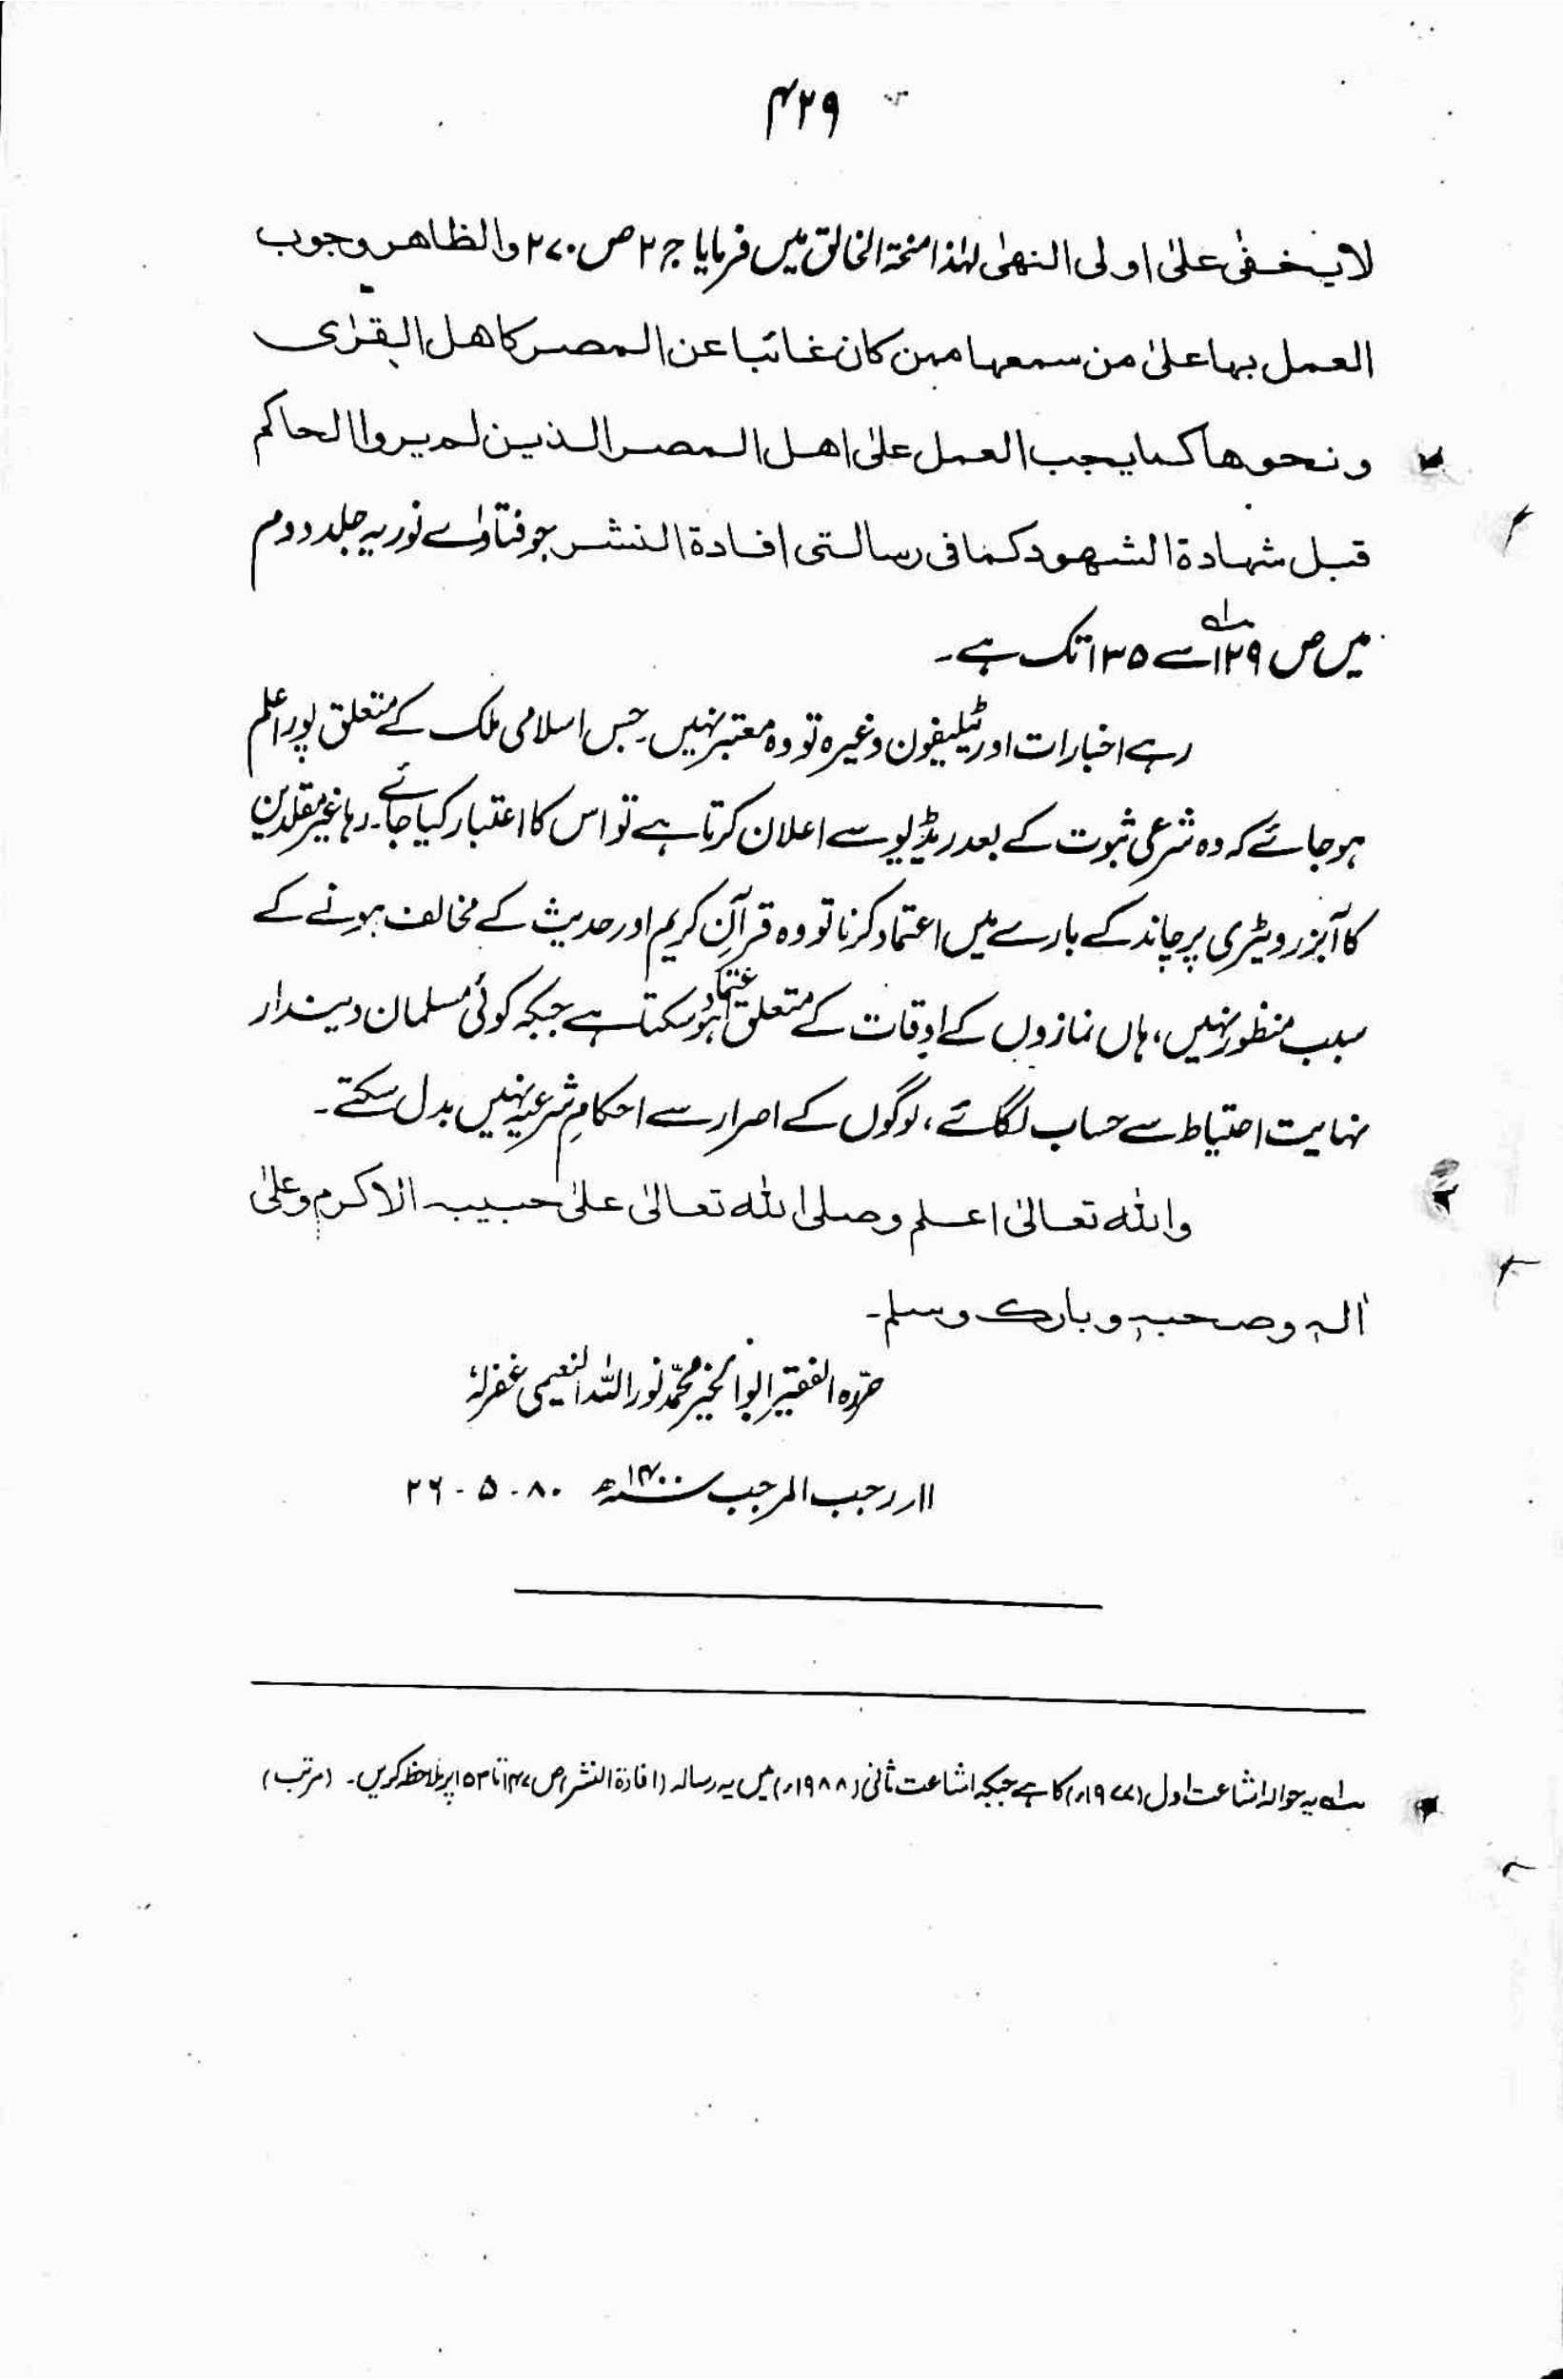 ۴۲۹
لا یخفٰی علیٰ اولی النھیٰ لہٰذا منحۃ الخالق میں فرمایا ج ۲ ص ۲۷۰ والظاھر وجوب
العمل بہا علیٰ من سمعہا ممن کان غائبا عن المصر کاھل القرٰی
ونحوھا کما یجب العمل علیٰ اھل المصر الذین لم یروا الحاکم
قبل شہادۃ الشھود کما فی رسالتی افادۃ النشر جو فتاوٰے نوریہ جلد دوم
میں ص ۱۲۹ لہ سے ۱۳۵ تک ہے۔
رہے اخبارات اور ٹیلیفون وغیرہ تو وہ معتبر نہیں۔ جس اسلامی ملک کے متعلق پورا علم
ہو جائے کہ وہ شرعی ثبوت کے بعد ریڈیو سے اعلان کرتا ہے تو اس کا اعتبار کیا جائے۔ رہا غیر مقلدین
کا آبزرویٹری پر چاند کے بارے میں اعتماد کرنا تو وہ قرآنِ کریم اور حدیث کے مخالف ہونے کے
سبب منظور نہیں، ہاں نمازوں کے اوقات کے متعلق اعتماد ہو سکتا ہے جبکہ کوئی مسلمان دیندار
نہایت احتیاط سے حساب لگائے، لوگوں کے اصرار سے احکامِ شرعیہ نہیں بدل سکتے۔
واللہ تعالیٰ اعلم وصلی اللہ تعالیٰ علیٰ حبیبہ الاکرم وعلیٰ
اٰلہٖ وصحبہٖ وبارک وسلم۔
حرّرہ الفقیر ابوالخیر محمّد نور اللہ النعیمی غفرلہٗ
۱۱ر رجب المرجب سنہ ۱۴۰۰ھ ۸۰-۵-۲۶
لہ یہ حوالہ اشاعت اول (۱۹۷۷ء) کا ہے جبکہ اشاعت ثانی (۱۹۸۸ء) میں یہ رسالہ (افادۃ النشر) ص ۱۴۷ تا ۱۵۳ پر ملاحظہ کریں۔ (مرتب)